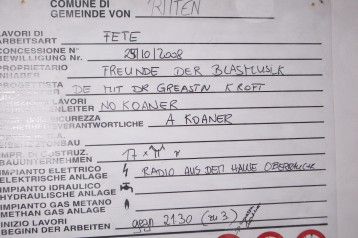 COMUNE DI
GEMEINDE VON RITTEN
LAVORI DI
ARBEITSART FETE
CONCESSIONE N°
BEWILLIGUNG Nr. 25/10/2008
PROPRIETARIO
INHABER FREUNDE DER BLASMUSIK
PROGETTISTA DE MIT DR GREASTN KROFT
LAVORI
LEITER NO KOANER
SICUREZZA
VERANTWORTLICHE A KOANER
BAU
IMPR. DI COSTRUZ.
BAUUNTERNEHMEN
IMPIANTO ELETTRICO
ELEKTRISCHE ANLAGE RADIO AUS DER HALLE
IMPIANTO IDRAULICO
HYDRAULISCHE ANLAGE
IMPIANTO GAS METANO
METHAN GAS ANLAGE
INIZIO LAVORI
BEGINN DER ARBEITEN gegn 21.30 (zu 3)